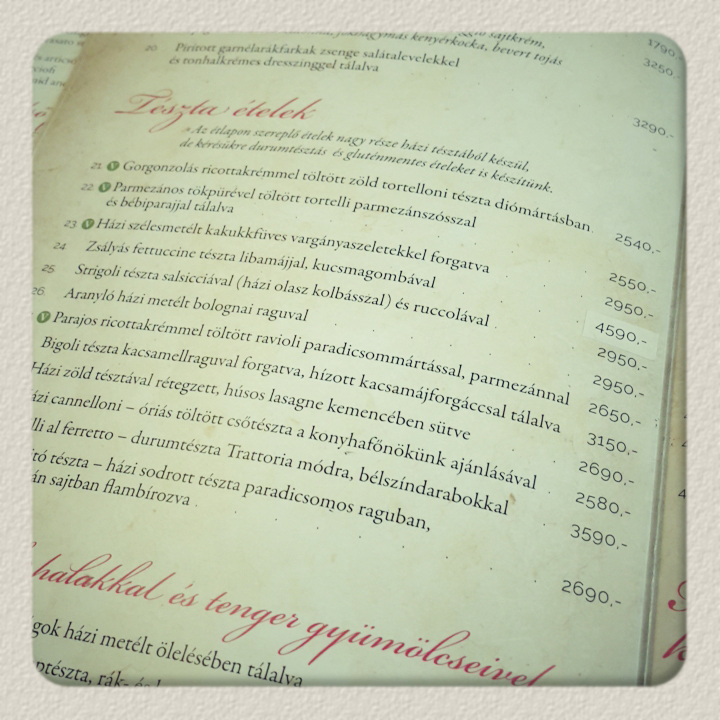 sajtkrém,
jokhagymás kenyérkocka, bevert tojás
1790.-
20 Pirított garnélarákfarkak zsenge salátalevelekkel
3250.-
és tonhalkrémes dresszinggel tálalva
3290.-
Tészta ételek
Az étlapon szereplő ételek nagy része házi tésztából készül,
de kérésükre durumtésztás és gluténmentes ételeket is készítünk.
21 V Gorgonzolás ricottakrémmel töltött zöld tortelloni tészta diómártásban 2540.-
22 V Parmezános tökpürével töltött tortelli parmezánszósszal
és bébiparajjal tálalva 2550.-
23 V Házi szélesmetélt kakukkfüves vargányaszeletekkel forgatva 2950.-
24 Zsályás fettuccine tészta libamájjal, kucsmagombával 4590.-
25 Strigoli tészta salsicciával (házi olasz kolbásszal) és ruccolával 2950.-
26 Aranyló házi metélt bolognai raguval 2950.-
V Parajos ricottakrémmel töltött ravioli paradicsommártással, parmezánnal 2650.-
Bigoli tészta kacsamellraguval forgatva, hízott kacsamájforgáccsal tálalva 3150.-
Házi zöld tésztával rétegzett, húsos lasagne kemencében sütve 2690.-
ázi cannelloni – óriás töltött csőtészta a konyhafőnökünk ajánlásával 2580.-
lli al ferretto – durumtészta Trattoria módra, bélszíndarabokkal 3590.-
tó tészta – házi sodrott tészta paradicsomos raguban,
án sajtban flambírozva 2690.-
halakkal és tenger gyümölcseivel
gok házi metélt ölelésében tálalva
ptészta, rák- és